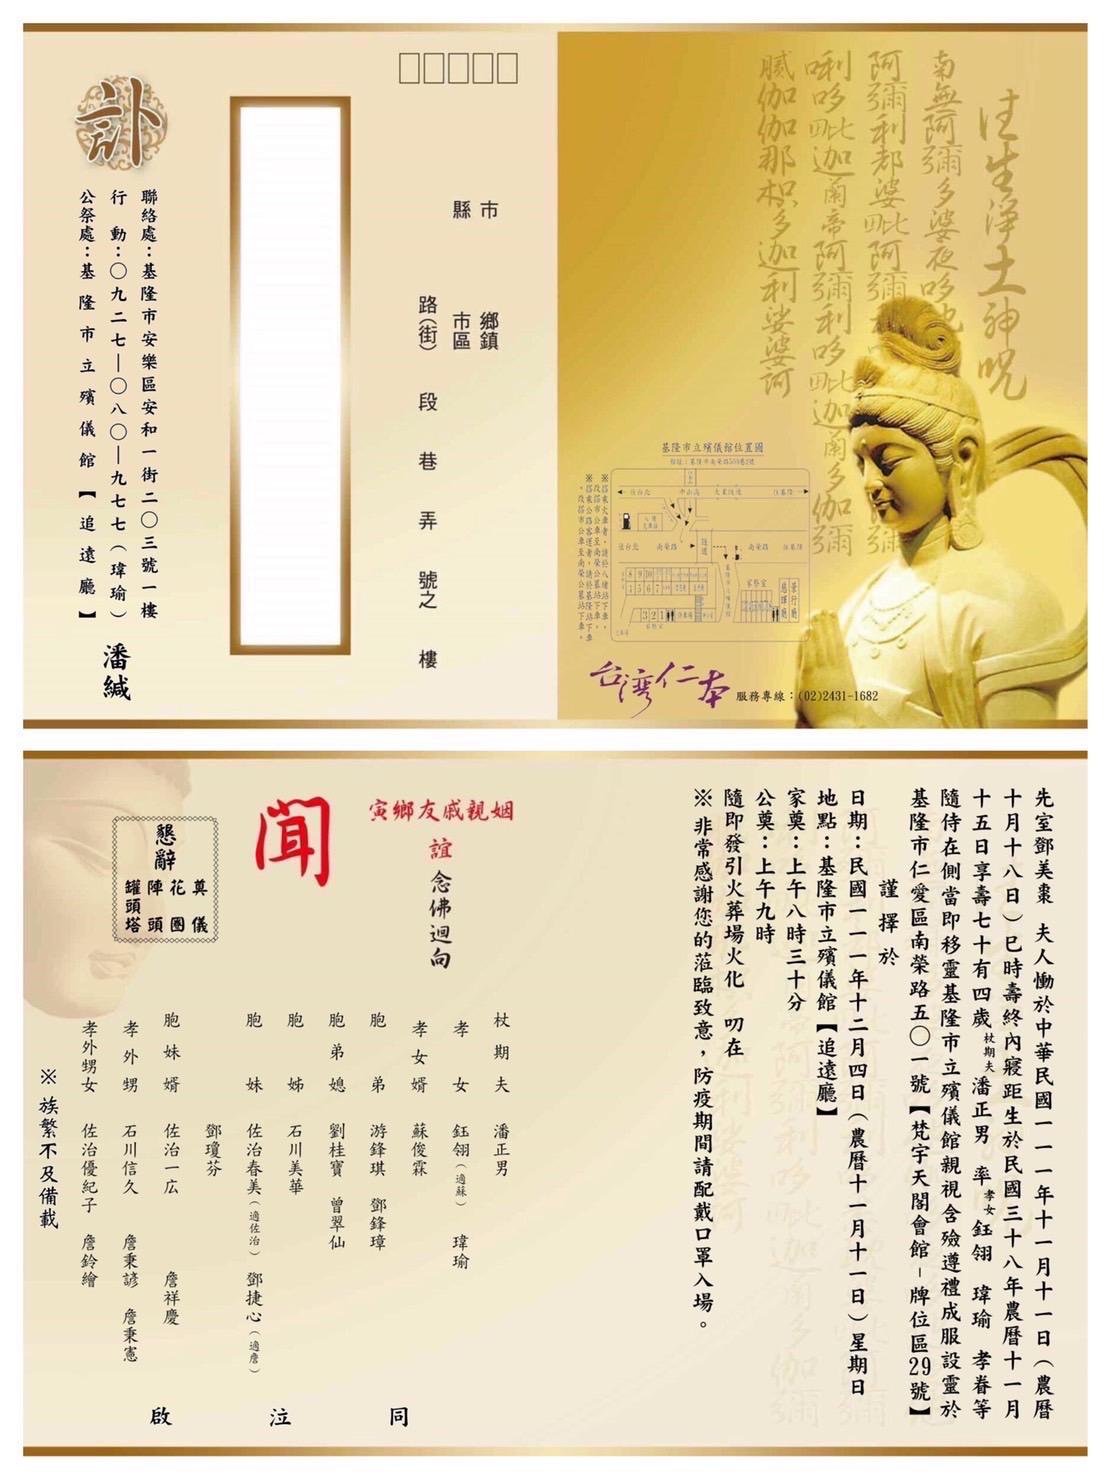 往生淨土神咒
南無阿彌多婆夜哆
阿彌利都婆毗阿彌利
唎哆毗迦蘭帝阿彌利哆毗迦蘭多伽彌
膩伽伽那枳多迦利娑婆訶
基隆市立殯儀館位置圖
台灣仁本
服務專線：(02)2431-1682
市
縣
鄉鎮
市區
路(街)
段
巷
弄
號之
樓
訃
聯絡處：基隆市安樂區安和一街二〇三號一樓
行動：〇九二七—〇八〇—九七七（瑋瑜）
公祭處：基隆市立殯儀館【追遠廳】
潘緘
先室鄧美棗 夫人慟於中華民國一一一年十一月十一日（農曆
十月十八日）巳時壽終內寢距生於民國三十八年農曆十一月
十五日享壽七十有四歲杖期夫潘正男 率孝女鈺翎 瑋瑜 孝眷等
隨侍在側當即移靈基隆市立殯儀館親視含殮遵禮成服設靈於
基隆市仁愛區南榮路五〇一號【梵宇天閣會館－牌位區29號】
謹擇於
日期：民國一一一年十二月四日（農曆十一月十一日）星期日
地點：基隆市立殯儀館【追遠廳】
家奠：上午八時三十分
公奠：上午九時
隨即發引火葬場火化 叨在
※非常感謝您的蒞臨致意，防疫期間請配戴口罩入場。
寅鄉友戚親姻
誼
念佛迴向
聞
懇辭
奠儀
花圈
陣頭
罐頭塔
杖期夫 潘正男
孝女 鈺翎（適蘇） 瑋瑜
孝女婿 蘇俊霖
胞弟 游鋒琪 鄧鋒璋
胞弟媳 劉桂寶 曾翠仙
胞姊 石川美華
胞妹 佐治春美（適佐治） 鄧捷心（適詹）
鄧瓊芬
胞妹婿 佐治一広 詹祥慶
孝外甥 石川信久 詹秉諺 詹秉憲
孝外甥女 佐治優紀子 詹鈴繪
※族繁不及備載
同
泣
啟